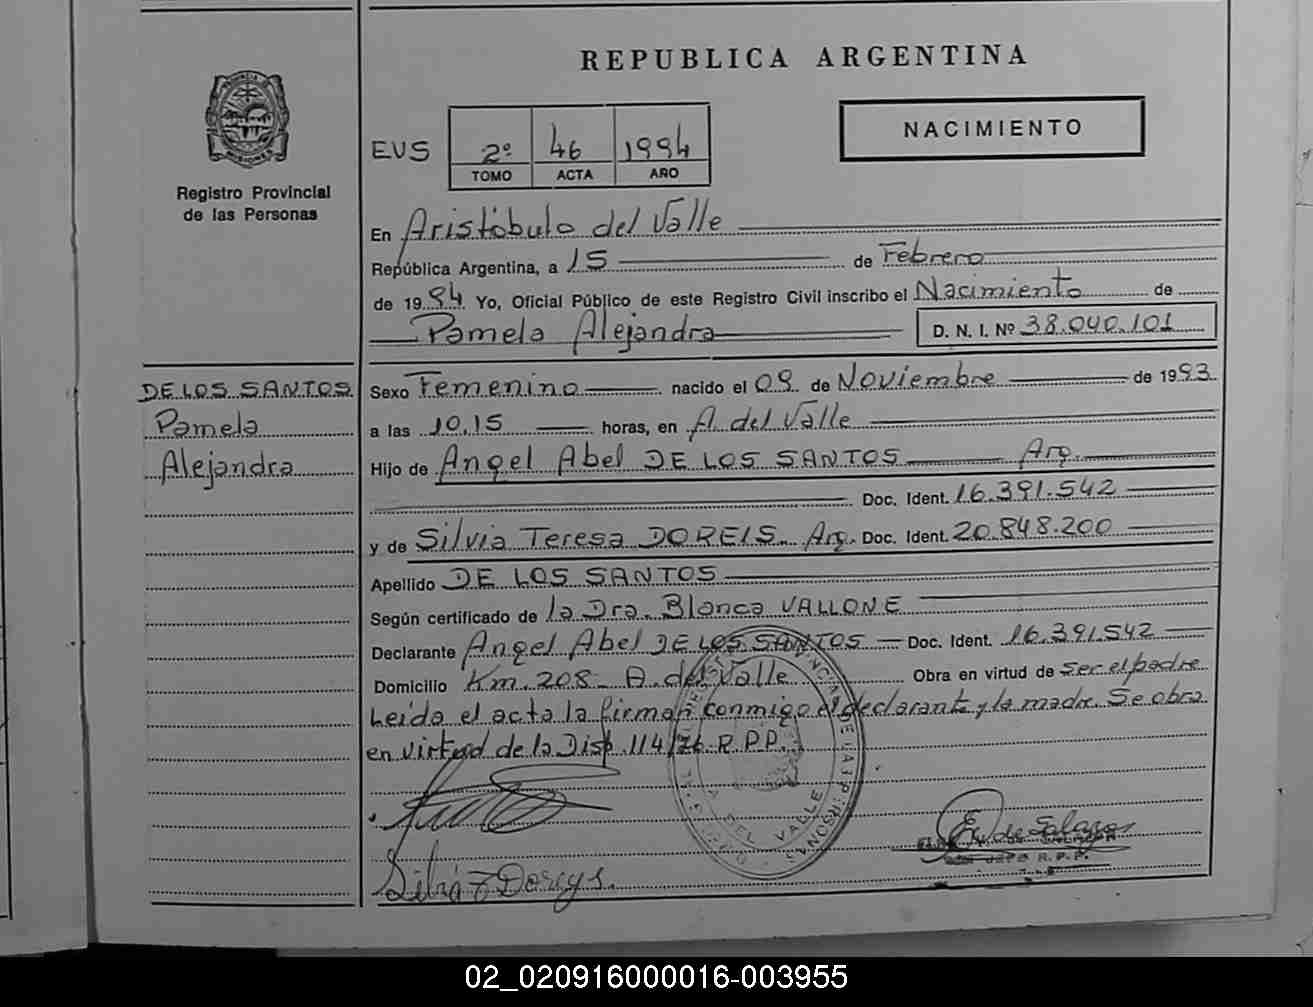 REPUBLICA ARGENTINA
NACIMIENTO
EVS 2º 46 1994
TOMO ACTA AÑO
Registro Provincial
de las Personas
En Aristóbulo del Valle
República Argentina, a 15 de Febrero
de 1994 Yo, Oficial Público de este Registro Civil inscribo el Nacimiento de
Pamela Alejandra D. N. I. Nº 38.040.101
DE LOS SANTOS
Pamela
Alejandra
Sexo Femenino nacido el 09 de Noviembre de 1993
a las 10,15 horas, en A. del Valle
Hijo de Angel Abel DE LOS SANTOS Arg.
Doc. Ident. 16.391.542
y de Silvia Teresa DOREIS. Arg. Doc. Ident. 20.848.200
Apellido DE LOS SANTOS
Según certificado de la Dra. Blanca VALLONE
Declarante Angel Abel DE LOS SANTOS Doc. Ident. 16.391.542
Domicilio Km. 208 - A. del Valle Obra en virtud de ser el padre
Leída el acta la firman conmigo el declarante y la madre. Se obra
en virtud de la Disp. 114/76 R.P.P.
DEL VALLE
R.P.P.
02_020916000016-003955